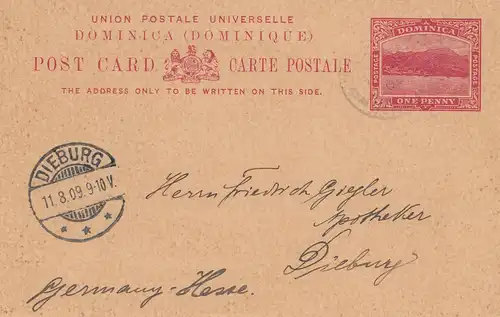 UNION POSTALE UNIVERSELLE
DOMINICA (DOMINIQUE)
POST CARD CARTE POSTALE
THE ADDRESS ONLY TO BE WRITTEN ON THIS SIDE.
DOMINICA
POSTAGE
POSTAGE
ONE PENNY
DIEBURG
11.8.09.9-10V.
Herrn Friedrich Giegler
Apotheker
Dieburg
Germany-Hesse.